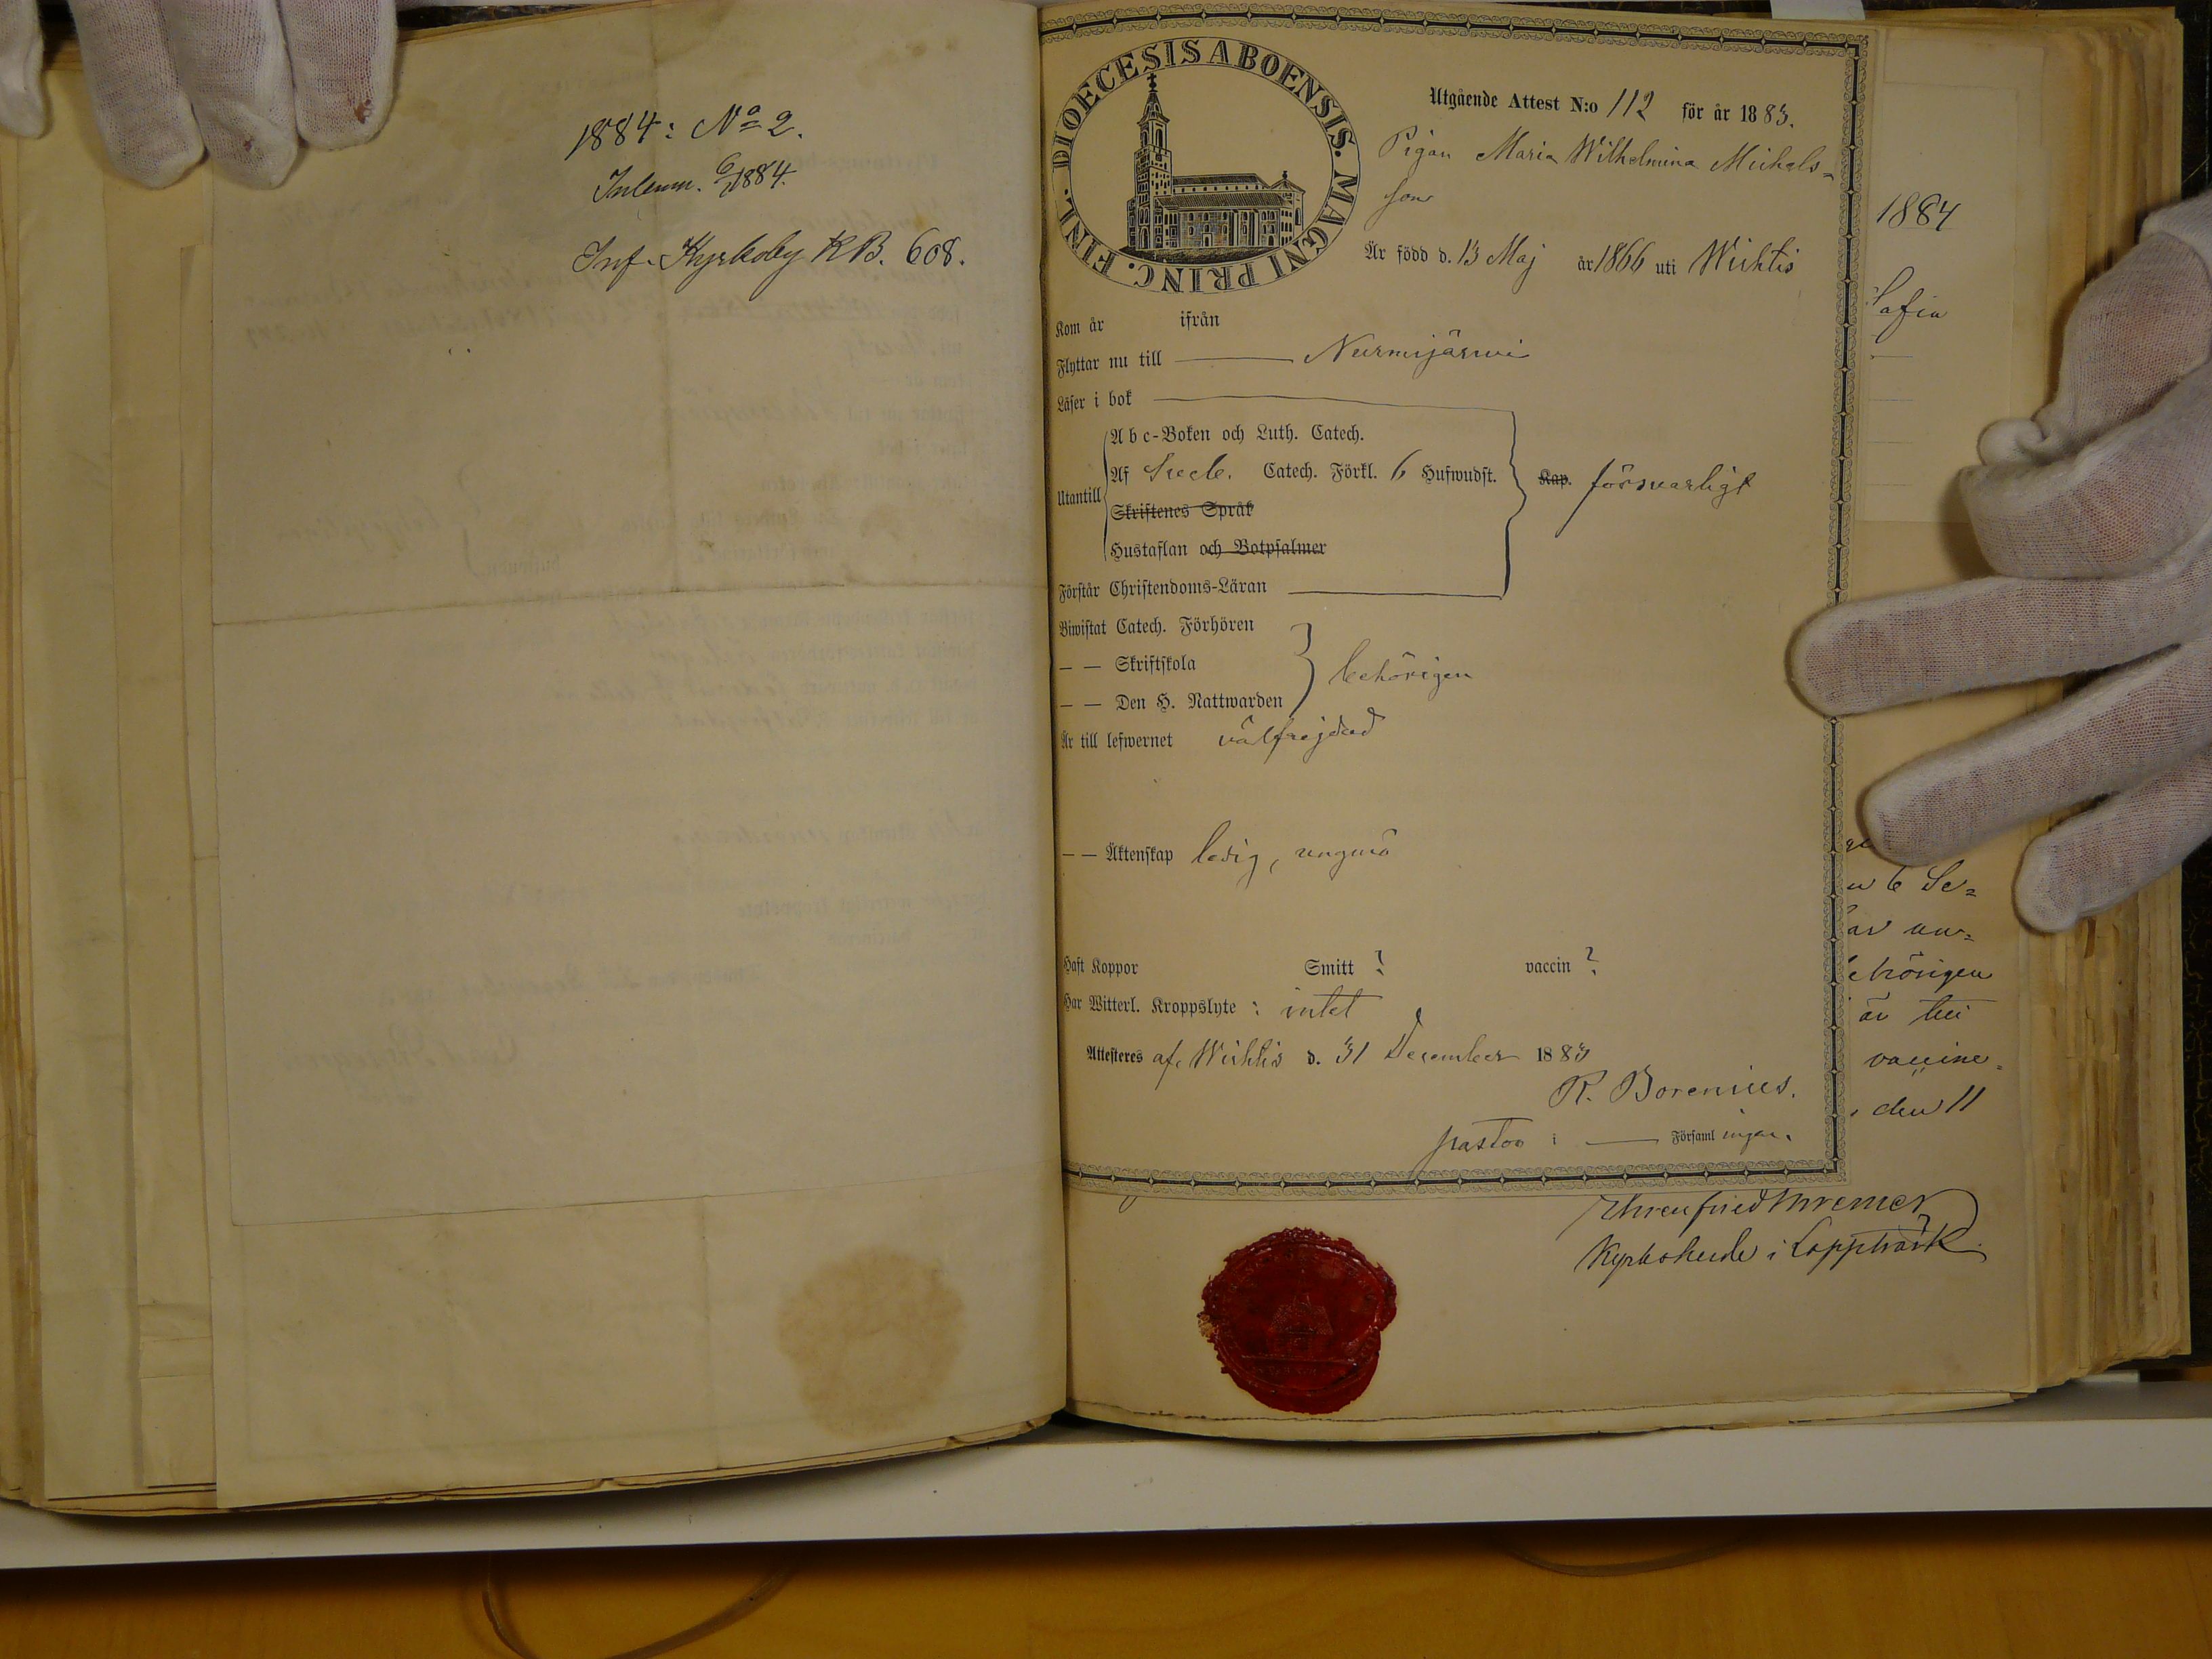 1884: No 2.
Inlemn. 9/1 1884.
Inf. Kyrkoby KB. 608.
DIOECESIS ABOENSIS. MAGNI PRINC. FINL.
Utgående Attest N:o 112 för år 1883.
Pigan Maria Wilhelmina Michels=
son
Är född d. 13 Maj år 1866 uti Wichtis
Kom år ifrån
Flyttar nu till Nurmijärwi
Läser i bok
Abc-Boken och Luth. Catech.
Utantill Af Sveb. Catech. Förkl. 6 Hufwudst. Kap. försvarligt
Skriftenes Språk
Hustaflan och Botpsalmer
Förstår Christendoms-Läran
Biwistat Catech. Förhören
— — Skriftskola behörigen
— — Den H. Nattwarden
Är till lefwernet välfrejdad
— — Äktenskap ledig, ungmö
Haft Koppor Smitt ? vaccin ?
Har Witterl. Kroppslyte : intet
Attesteres af. Wichtis d. 31 December 1883
R. Borenius.
pastor i — Församlingen.
1884
Safia
u 6 Se=
av un=
behörigen
är till
vaccine
, den 11
Kyrkoherde i Lappträsk.